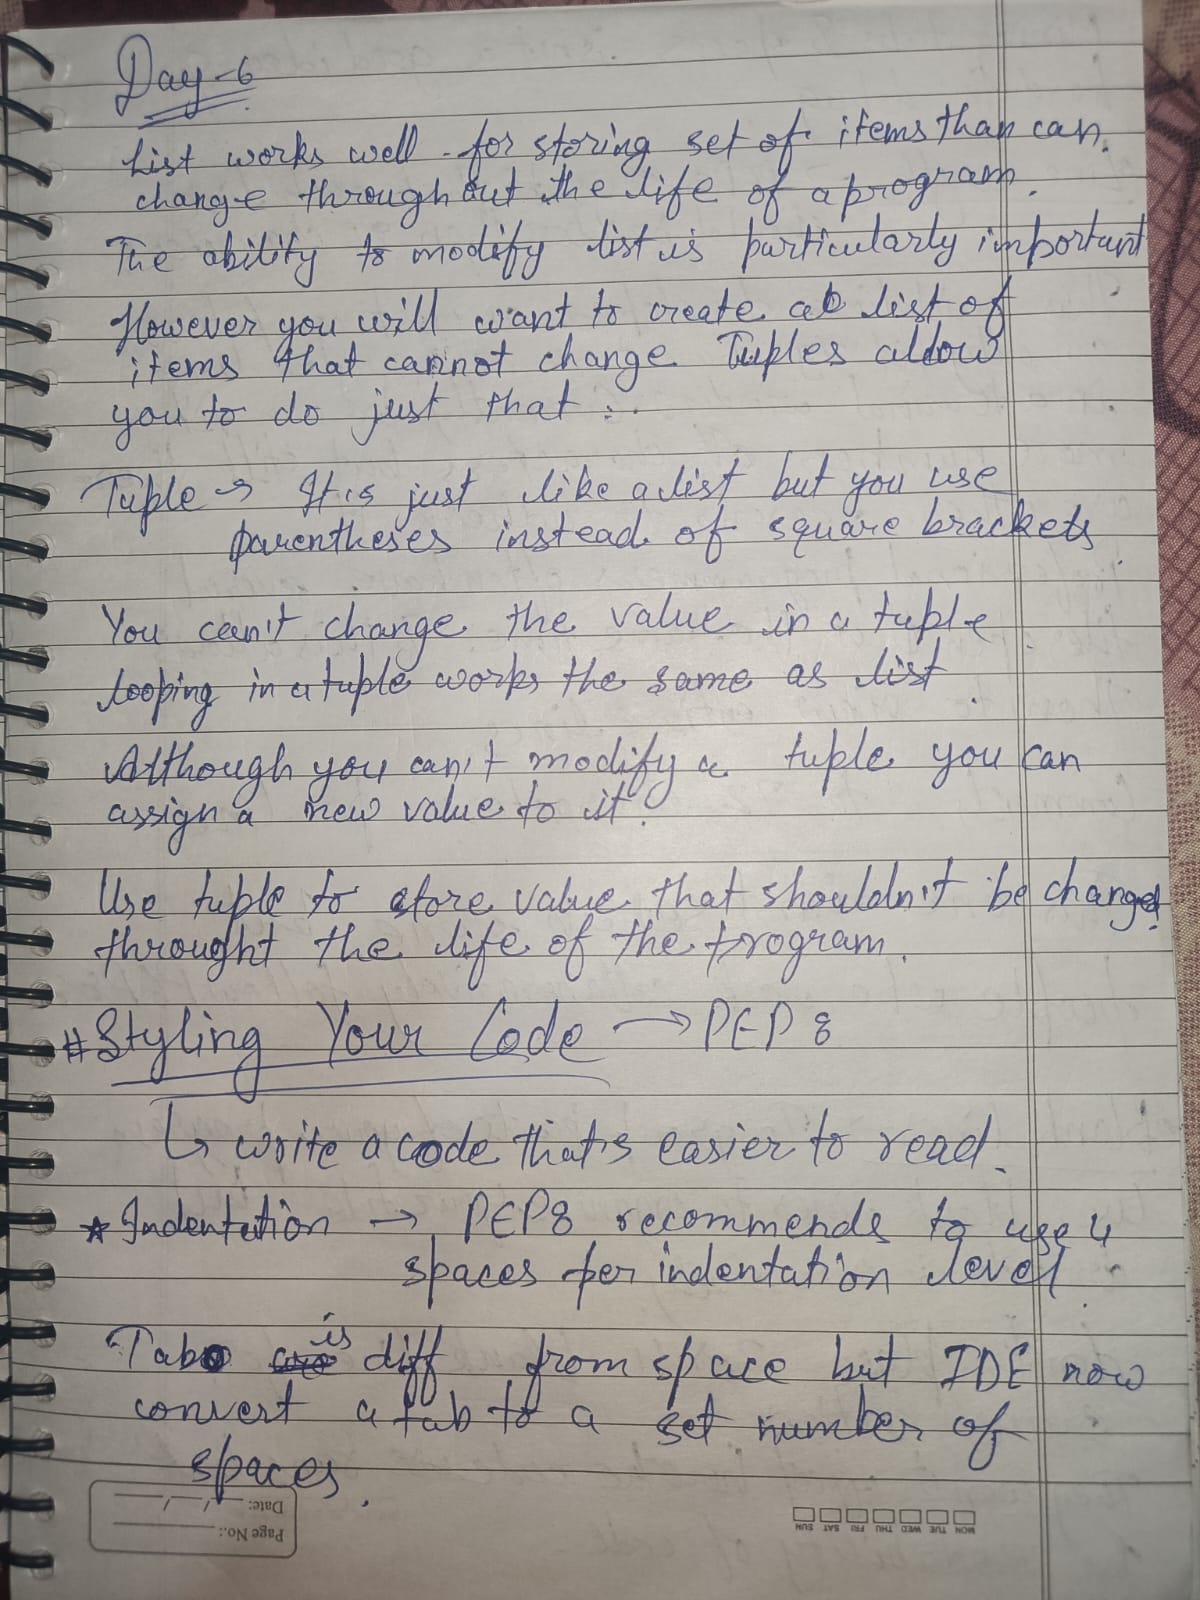 Day-6
List works well for storing set of items than can
change throughout the life of a program.
The ability to modify list is particularly important
However you will want to create a list of
items that cannot change Tuples allow
you to do just that :
Tuple → It is just like a list but you use
parentheses instead of square brackets
You can't change the value in a tuple
looping in a tuple works the same as list.
Although you can't modify a tuple you can
assign a new value to it.
Use tuple to store value that shouldn't be changed
throught the life of the program.
# Styling Your Code → PEP 8
↳ write a code that's easier to read.
* Indentation → PEP8 recommends to use 4
spaces per indentation level.
Tab is diff from space but IDE now
convert a tab to a set number of
spaces.
Page No.:
Date:
MON TUE WED THU FRI SAT SUN